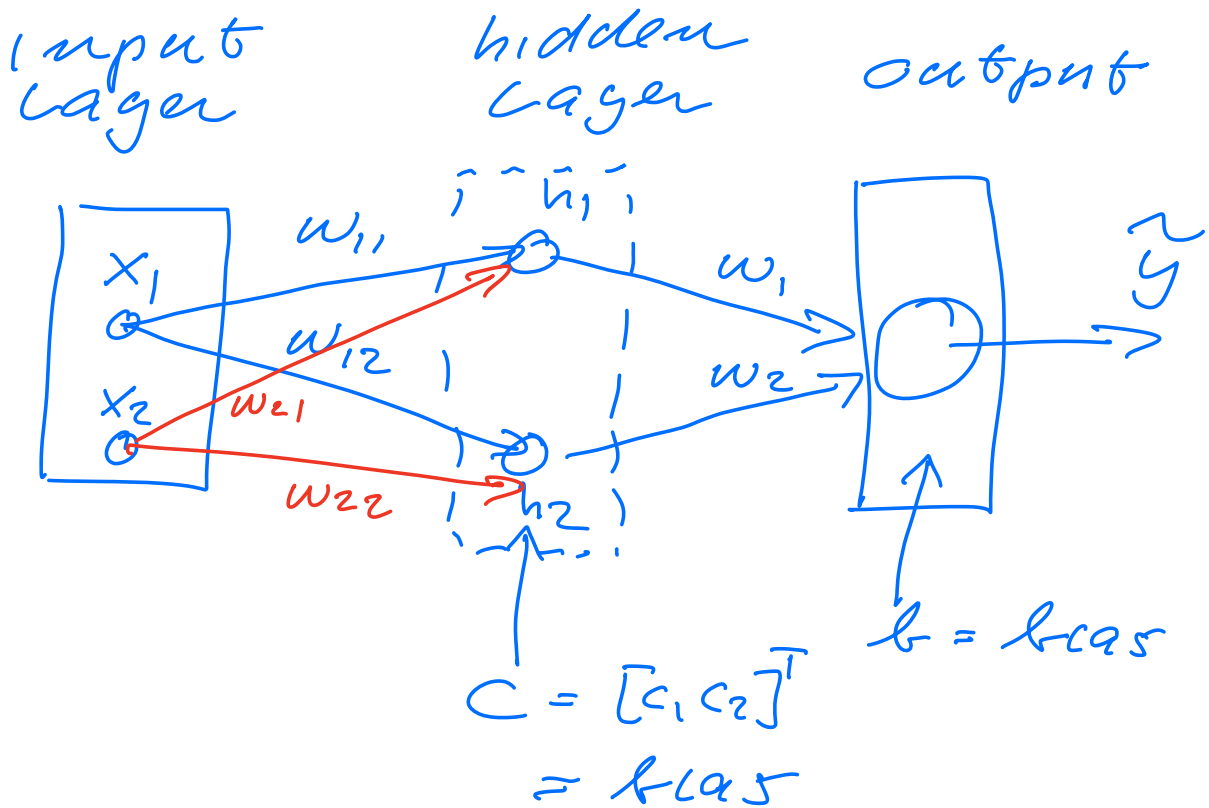 input
layer
hidden
layer
output
h₁
x₁
w₁₁
w₁
ỹ
w₁₂
w₂
x₂
w₂₁
w₂₂
h₂
b = bias
C = [c₁ c₂]ᵀ
= bias